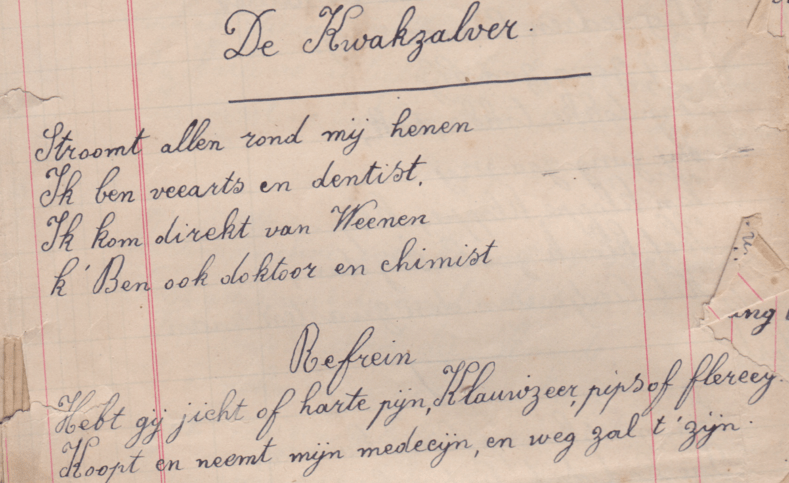 De Kwakzalver.
Stroomt allen rond mij henen
Ik ben veearts en dentist.
Ik kom direkt van Weenen
k' Ben ook doktoor en chimist
Refrein
Hebt gij jicht of harte pijn, Klauwzeer, pips of flereey.
Koopt en neemt mijn medecijn, en weg zal t' zijn.
ing